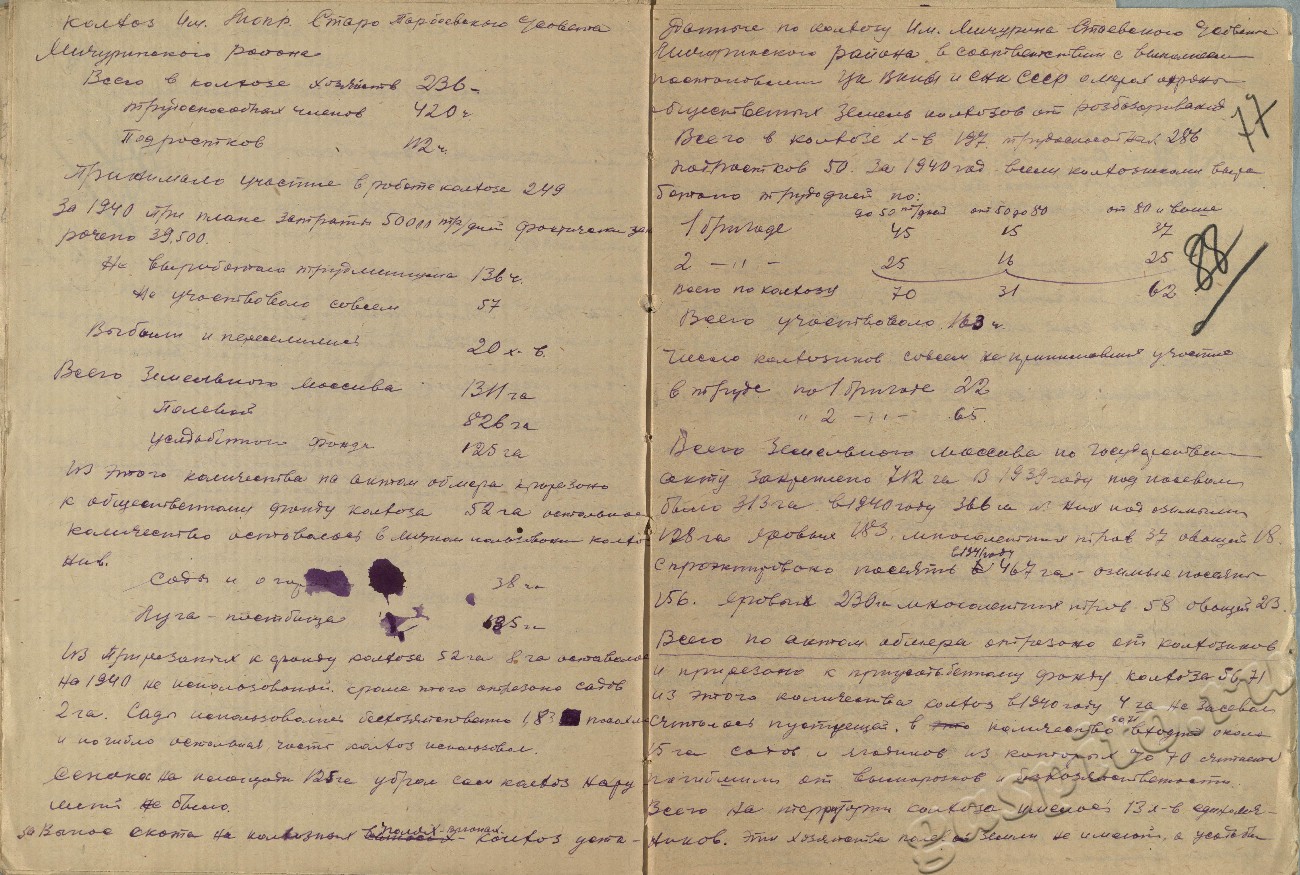 колхоз Им. Мопр. Старо Тарбеевского с/совета
Мичуринского района
Всего в колхозе хозяйств 236 –
трудоспособных членов 420 ч
Подростков 112 ч.
Принимало участие в работе колхоза 249
За 1940 при плане затраты 50000 тр/дней фактически за
рачено 39.500.
Не выработало трудминимума 136 ч.
Не участвовало совсем 57
Выбыли и переселились 20 х-в.
Всего Земельного массива 1311 га
Полевой 826 га
усадебного фонда 125 га
Из этого количества по актам обмера прирезано
к общественному фонду колхоза 52 га остальное
количество оставалось в личном пользовании колхо
ников.
сады и 38 га
Луга – пастбища 135 га
Из прирезанных к фонду колхоза 52 га 8 га оставалось
на 1940 не использованой. кроме этого отрезано садов
2 га. Сады использовались бесхозяйственно 1,83
и погибло остальная часть колхоз использовал.
Сенокос на площади 125 га убрал сам колхоз нару
шений не было.
за Выпас скота на колхозных полях колхоз уста-
Данные по колхозу Им. Мичурина Стаевского с/совета
Мичуринского района в соответствии с выполнением
постановления ЦК ВКП(б) и СНК СССР о мерах охраны
общественных Земель колхозов от розбазаривания
77
Всего в колхозе х-в 197 трудоспособных 286
подростков 50. За 1940 год всеми колхозниками выра
ботано трудодней по:
до 50 тр/дней от 50 до 80 от 80 и выше
1 бригаде 45 15 37
88
2 – " – 25 16 25
всего по колхозу 70 31 62
Всего участвовало 163 ч.
Число колхозников совсем не принимавших участие
в труде по 1 бригаде 22
" 2 – " – 65.
Всего Земельного массива по государственному
акту закреплено 712 га В 1939 году под посевом
было 313 га в 1940 году 366 га из них под озимыми
128 га яровых 183. многолетних трав 37 овощей 18.
спроэктировано посеять в 1941 году 467 га – озимые посеяно
156. яровых 230 га многолетних трав 58 овощей 23.
Всего по актам обмера отрезано от колхозников
и прирезано к приусадебному фонду колхоза 56,71
из этого количества колхоз в 1940 году 4 га не засевал
считалось пустующей. в количество входят около
15 га садов и ягодников из которых до 70 считаются
погибшими от выморозков и бесхозяйственности.
Всего на территории колхоза имелось 13 х-в единолич-
ников. Эти хозяйства полевой земли не имеют, а усадьбы